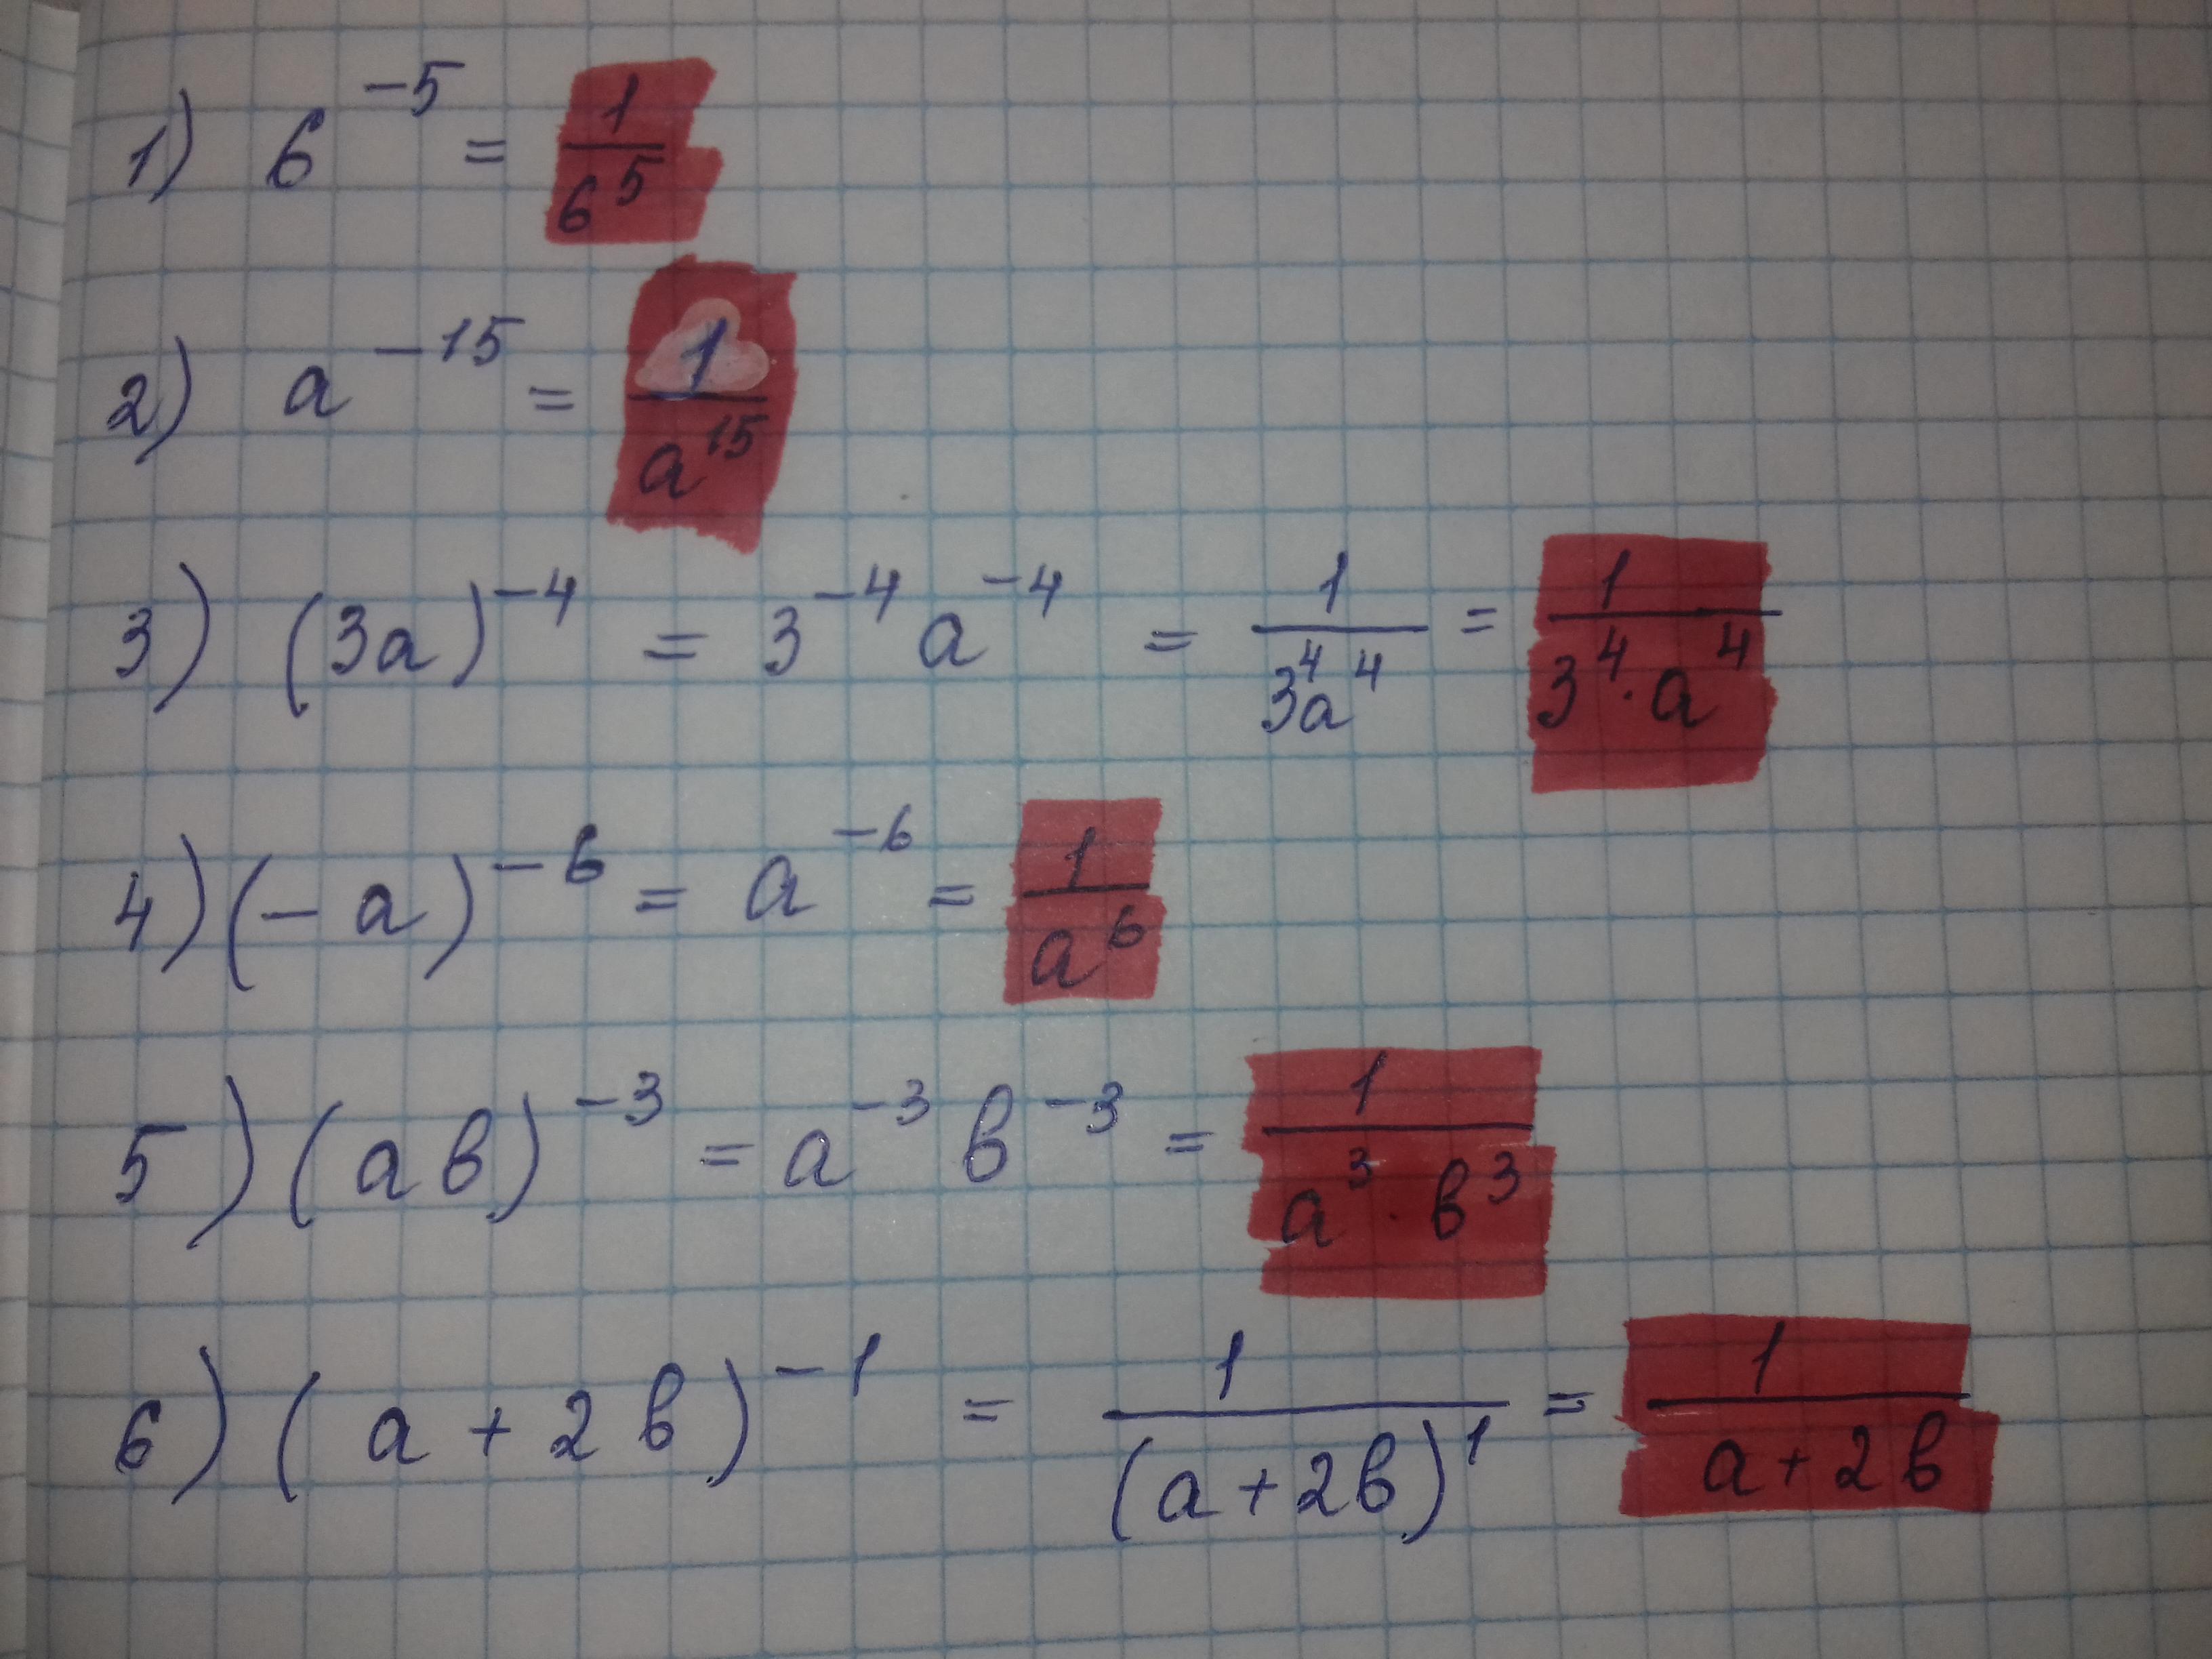 1) 6^{-5} = \frac{1}{6^5}
2) a^{-15} = \frac{1}{a^{15}}
3) (3a)^{-4} = 3^{-4} a^{-4} = \frac{1}{3^4 a^4} = \frac{1}{3^4 \cdot a^4}
4) (-a)^{-6} = a^{-6} = \frac{1}{a^6}
5) (aв)^{-3} = a^{-3} в^{-3} = \frac{1}{a^3 \cdot в^3}
6) (a + 2в)^{-1} = \frac{1}{(a+2в)^1} = \frac{1}{a+2в}